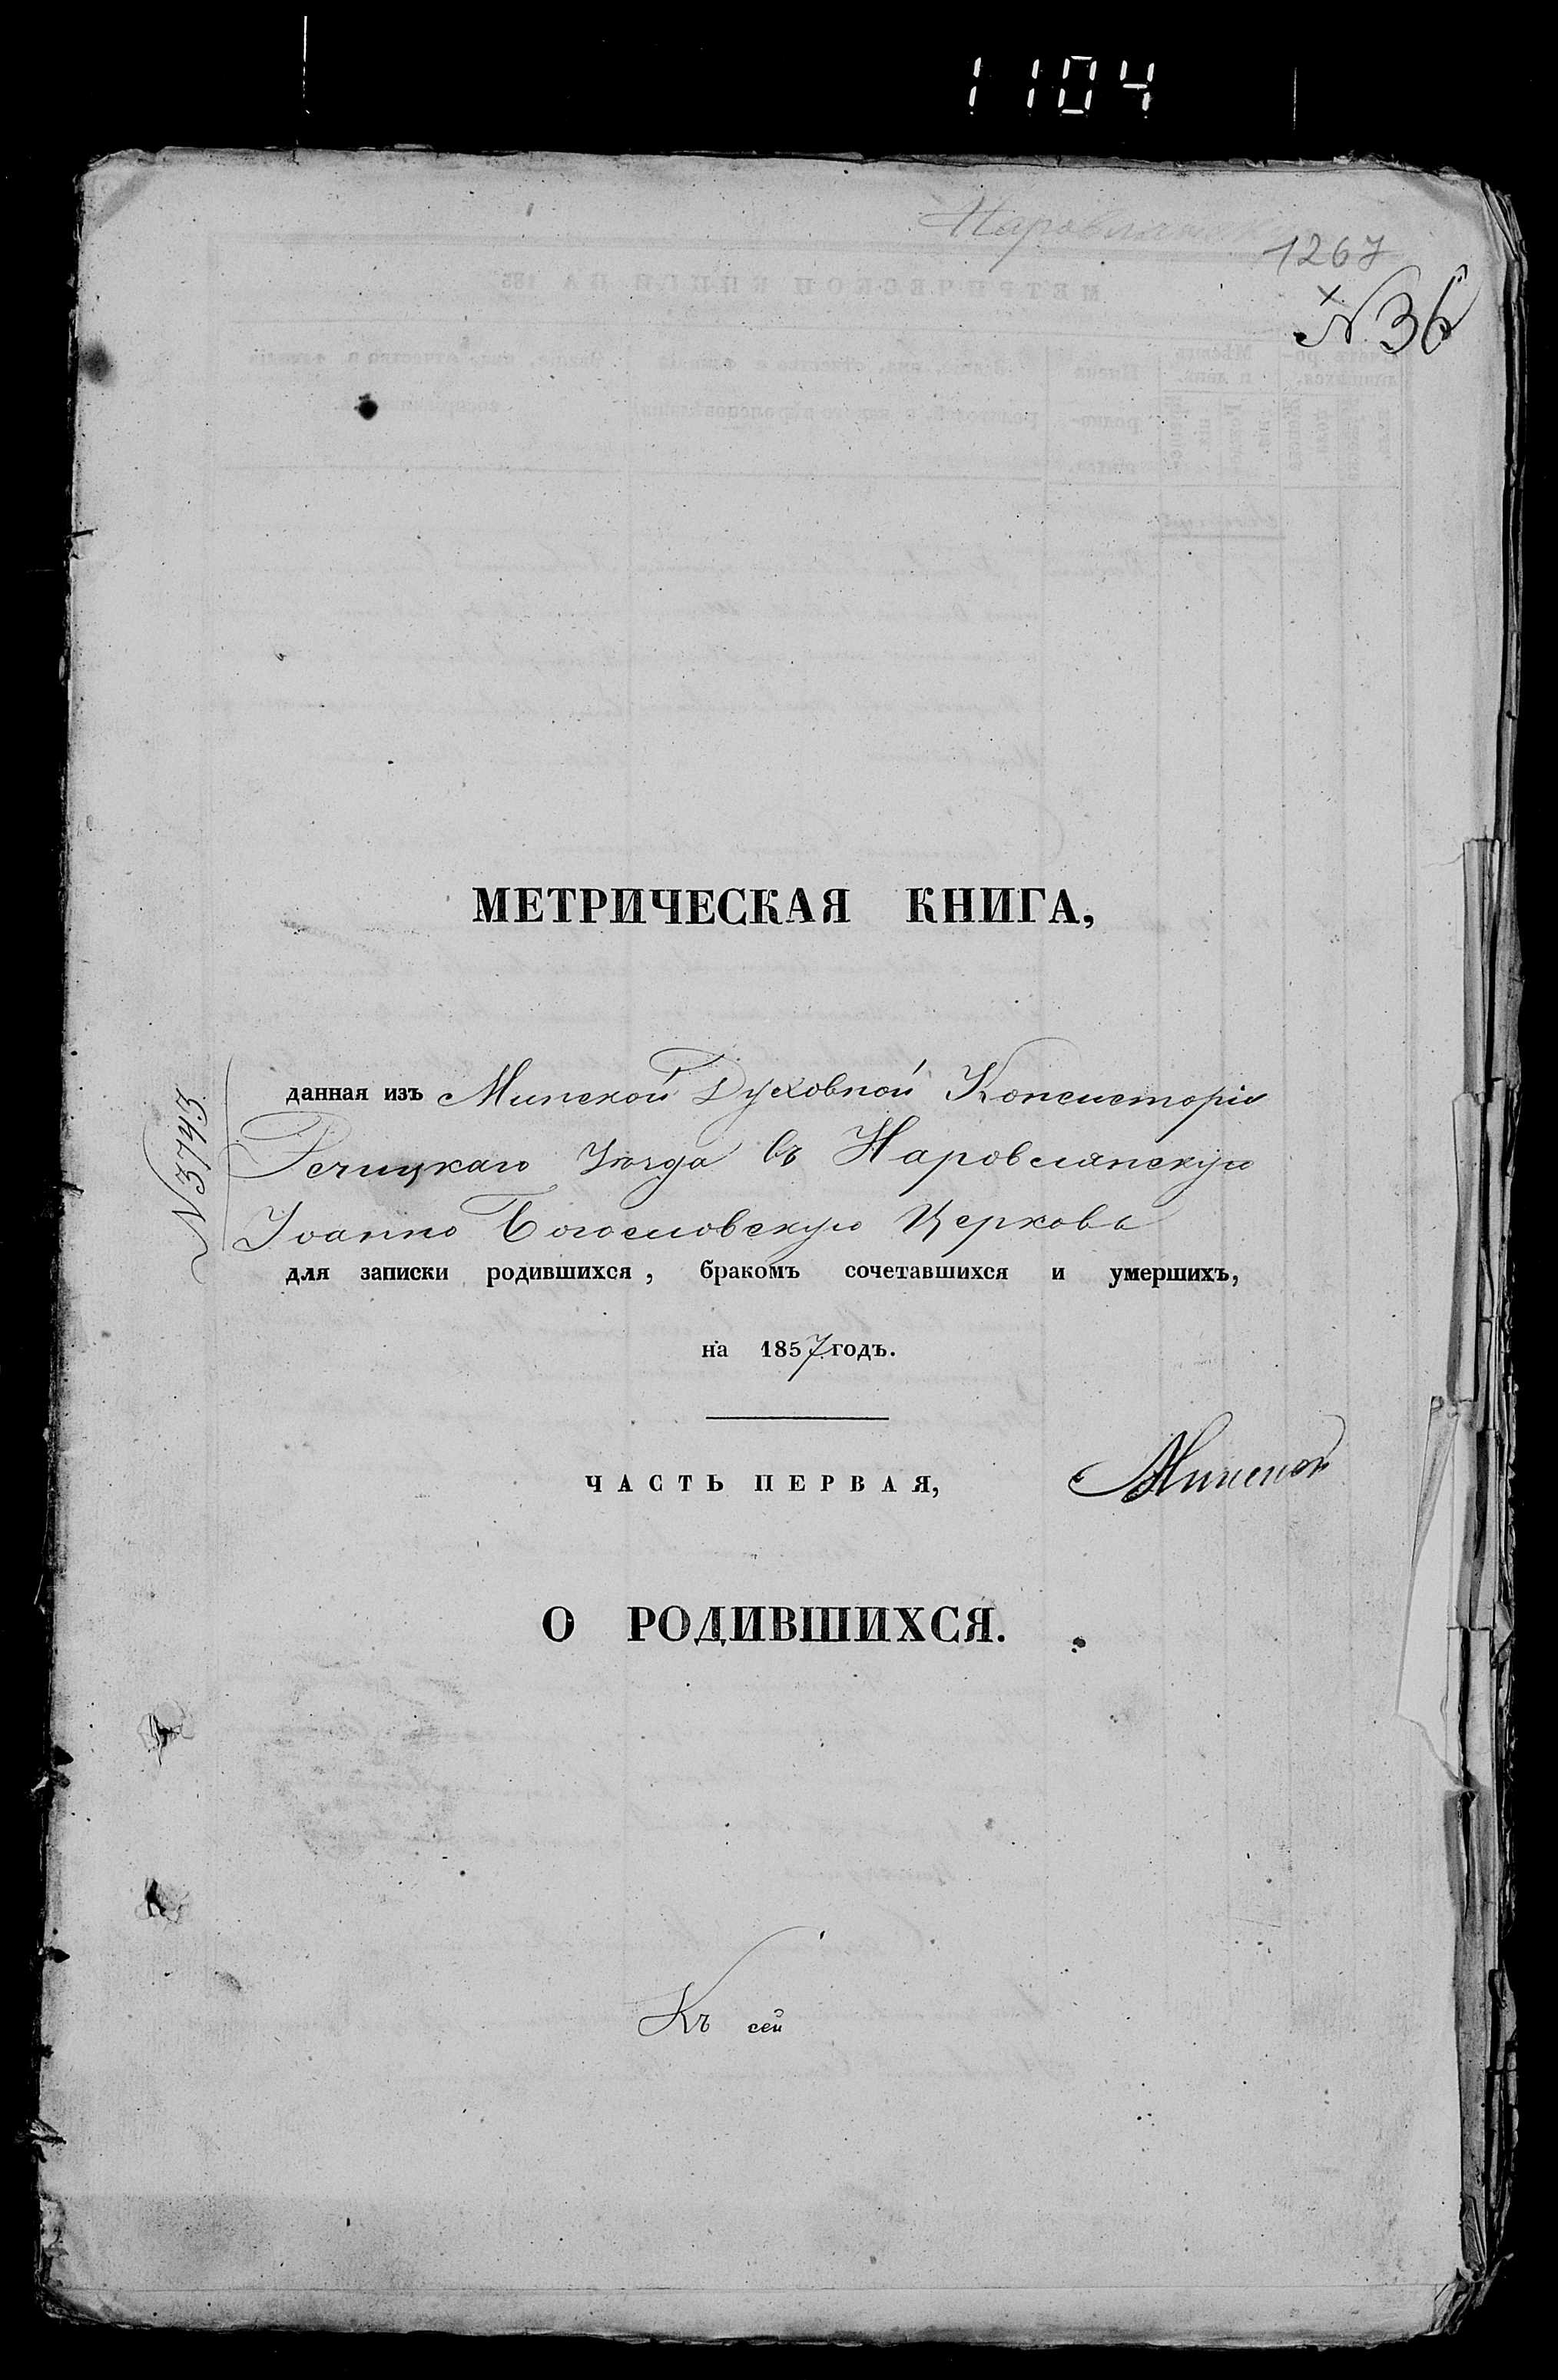 1104
Наровлянск
1267
N. 36
МЕТРИЧЕСКАЯ КНИГА,
N 3743
данная изъ Минской Духовной Консисторіи
Речицкаго Уѣзда въ Наровлянскую
Іоанно Богословскую Церковь
для записки родившихся, бракомъ сочетавшихся и умершихъ,
на 1857 годъ.
ЧАСТЬ ПЕРВАЯ,
Минской
О РОДИВШИХСЯ.
Къ сей